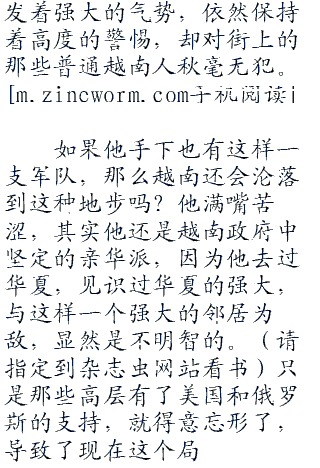 发着强大的气势，依然保持
着高度的警惕，却对街上的
那些普通越南人秋毫无犯。
[m.zincworm.com手机阅读i
如果他手下也有这样一
支军队，那么越南还会沦落
到这种地步吗？他满嘴苦
涩，其实他还是越南政府中
坚定的亲华派，因为他去过
华夏，见识过华夏的强大，
与这样一个强大的邻居为
敌，显然是不明智的。（请
指定到杂志虫网站看书）只
是那些高层有了美国和俄罗
斯的支持，就得意忘形了，
导致了现在这个局